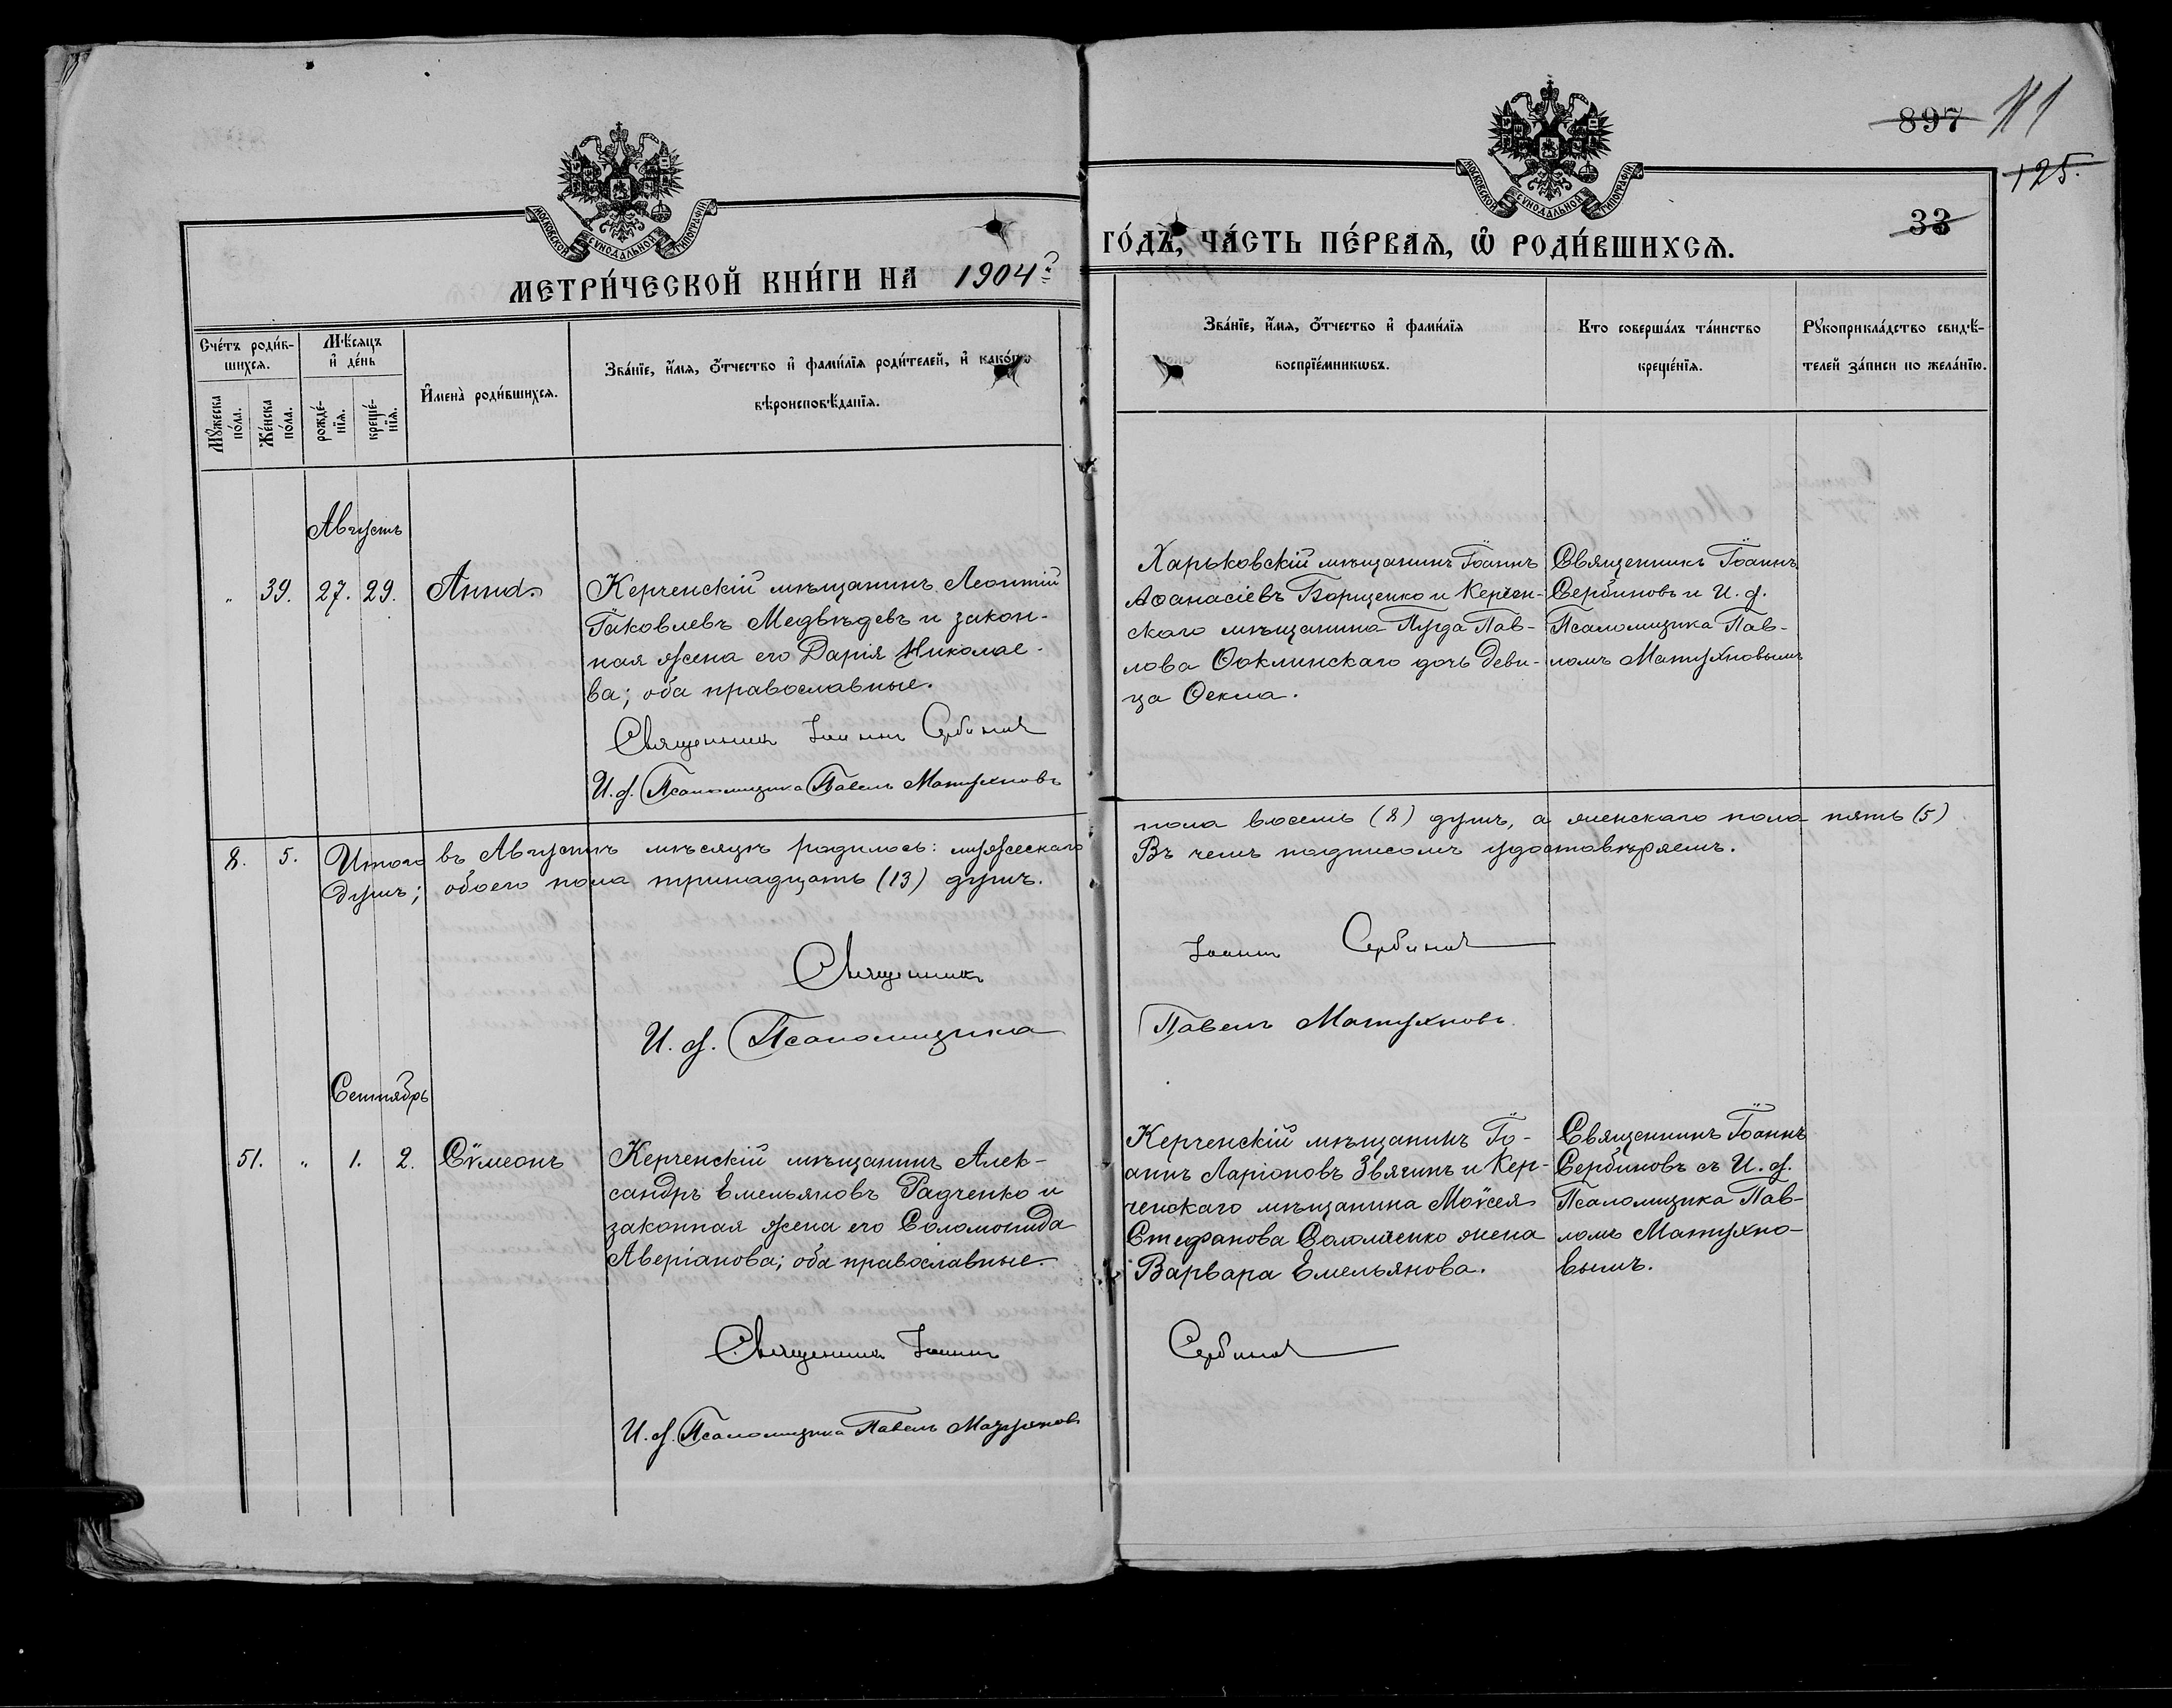 897 111
125.
33
МОСКОВСКОЙ СѴНОДАЛЬНОЙ ТИПОГРАФІИ
МОСКОВСКОЙ СѴНОДАЛЬНОЙ ТИПОГРАФІИ
МЕТРИ́ЧЕСКОЙ КНИ́ГИ НА 1904 г.
ГО́ДЪ, ЧА́СТЬ ПЕ́РВАѦ, Ѡ҆ РОДИ́ВШИХСѦ.
Сче́тъ роди́в-
шихсѧ.
Мꙋ́жеска по́ла.
Же́нска по́ла.
Мѣ́сѧцъ
и҆ де́нь
рожде́-
нїѧ.
креще́-
нїѧ.
И҆мена̀ роди́вшихсѧ.
Зва́нїе, и҆́мѧ, ѻ҆́тчество и҆ фами́лїѧ роди́телей, и҆ како́гѡ
вѣроисповѣ́данїѧ.
Зва́нїе, и҆́мѧ, ѻ҆́тчество и҆ фами́лїѧ
воспрїе́мникѡвъ.
Кто соверша́лъ та́инство
креще́нїѧ.
Рꙋкоприкла́дство свидѣ́-
телей за́писи по жела́нїю.
Августъ
" 39. 27. 29. Анна.
Керченскій мѣщанинъ Леонтій
Іаковлевъ Медвѣдевъ и закон-
ная жена его Дарія Николае-
ва; оба православные.
Священникъ Іоаннъ Сербиновъ
И. д. Псаломщика Павелъ Матухновъ
Харьковскій мѣщанинъ Іоаннъ
Аѳанасіевъ Борщенко и Керчен-
скаго мѣщанина Пав-
лова дочь деви-
ца Ѳекла.
Священникъ Іоаннъ
Сербиновъ и И. д.
Псаломщика Пав-
ломъ Матухновымъ
8. 5. Итого въ Августѣ мѣсяцѣ родилось: мужескаго
пола восемь (8) душъ, а женскаго пола пять (5)
душъ; обоего пола тринадцать (13) душъ.
Въ чемъ подписомъ удостовѣряемъ.
Священникъ Іоаннъ Сербиновъ
И. д. Псаломщика Павелъ Матухновъ.
Сентябрь
51. " 1. 2. Сѵмеонъ
Керченскій мѣщанинъ Алек-
сандръ Емельяновъ Радченко и
законная жена его Соломонида
Аверіанова; оба православные.
Керченскій мѣщанинъ Іо-
аннъ Ларіоновъ Звягинъ и Кер-
ченскаго мѣщанина Моѵсея
Стефанова жена
Варвара Емельянова.
Священникъ Іоаннъ
Сербиновъ съ И. д.
Псаломщика Пав-
ломъ Матухно-
вымъ.
Священникъ Іоаннъ Сербиновъ
И. д. Псаломщика Павелъ Матухновъ